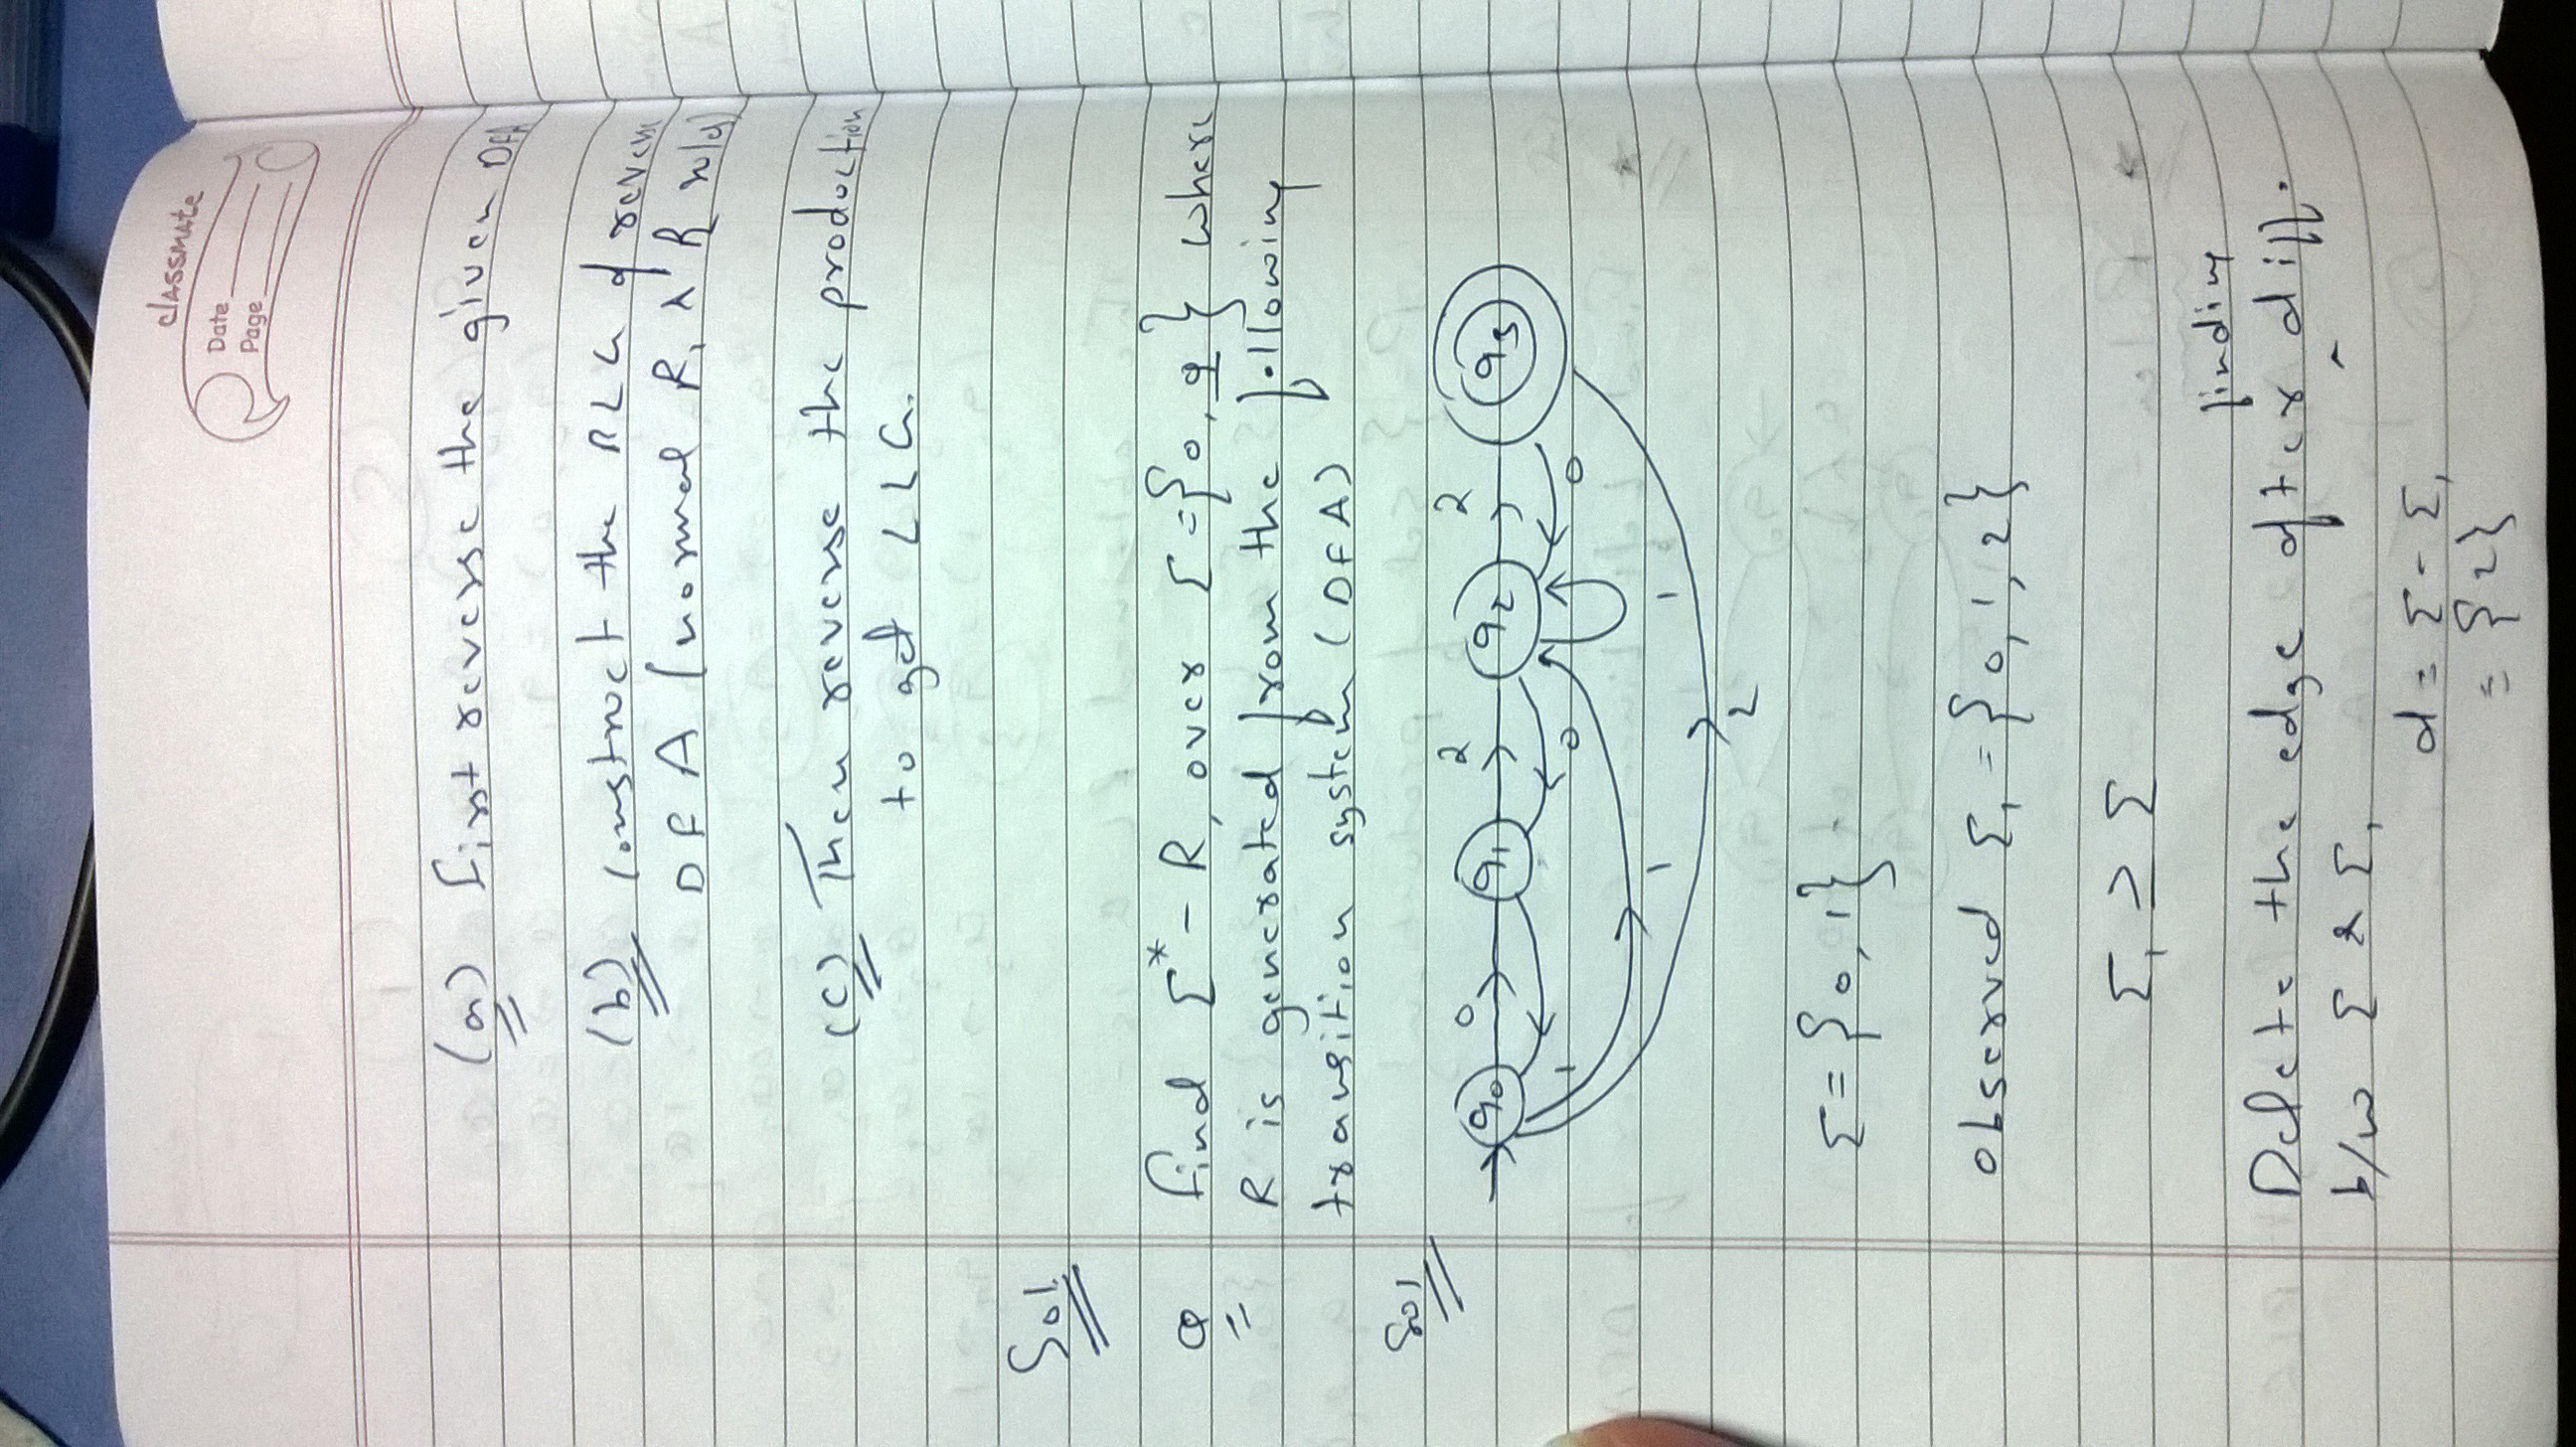 classmate
Date
Page
(a) First reverse the given DFA
(b) Construct the RLG of reverse
DFA (normal R, & R
(c) Then reverse the production
to get LLG.
Sol.
Q Find Σ* - R, over Σ = {0, } where
R is generated from the following
transition system (DFA)
Sol
q0 0 q1 2 q2 2 q3
1 0 0
1 1
2
Σ = {0, 1}
observed Σ₁ = {0, 1, 2}
Σ₁ ≥ Σ
finding
Delete the edge after diff.
b/w Σ & Σ₁
d = Σ - Σ₁
= {2}